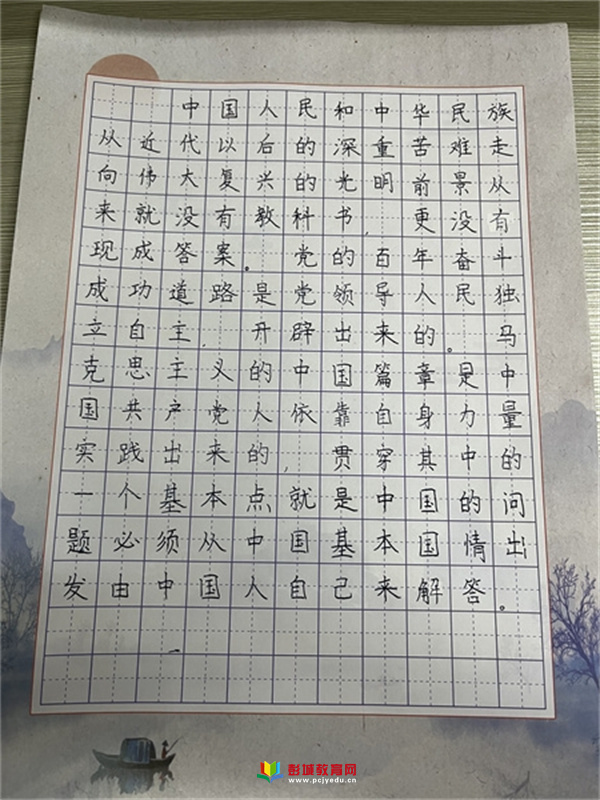 中国人民和中华民族
从近代以后的深重苦难走
向伟大复兴的光明前景从
来就没有教科书,更没有
现成答案。党的百年奋斗
成功道路是党领导人民独
立自主,开辟出来的。马
克思主义的中国篇章是中
国共产党人依靠自身力量
实践出来的,贯穿其中的
一个基本点就是中国的问
题必须从中国基本国情出
发,由中国人自己来解答。
彭城教育网
www.pcjyedu.cn